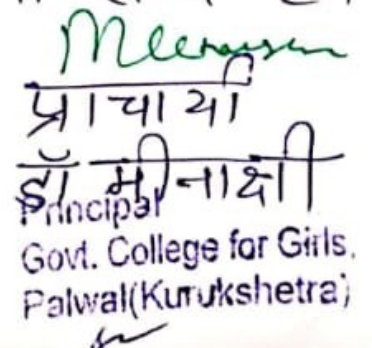 प्राचार्या
डॉ मीनाक्षी
Principal
Govt. College for Girls.
Palwal(Kurukshetra)